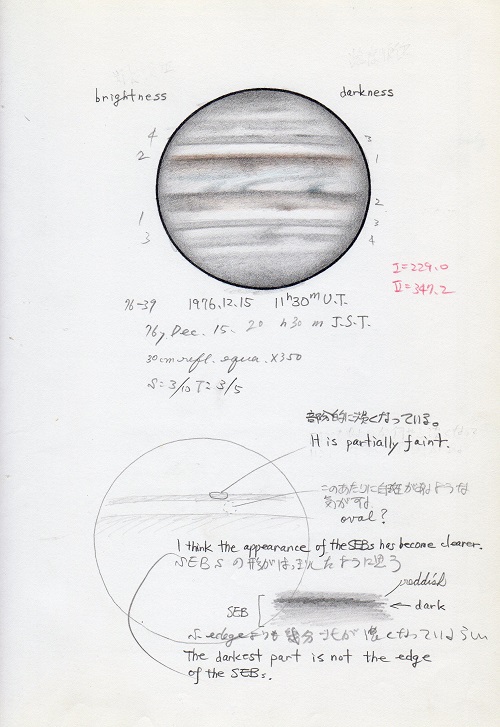 brightness
darkness
4
3
2
1
1
2
3
3
4
I=229.0
II=347.2
76-39 1976.12.15 11h30m U.T.
76, Dec. 15. 20h30m J.S.T.
30cm refl. equa. ×350
S=3/10 T=3/5
部分的に淡くなっている。
It is partially faint.
このあたりに白斑があるような
気がする
oval?
I think the appearance of the SEBs has become clearer.
SEBsの形がはっきりしたように思う
reddish
SEB
dark
S. edgeよりも幾分 が濃くなっているらしい
The darkest part is not the edge
of the SEBs.